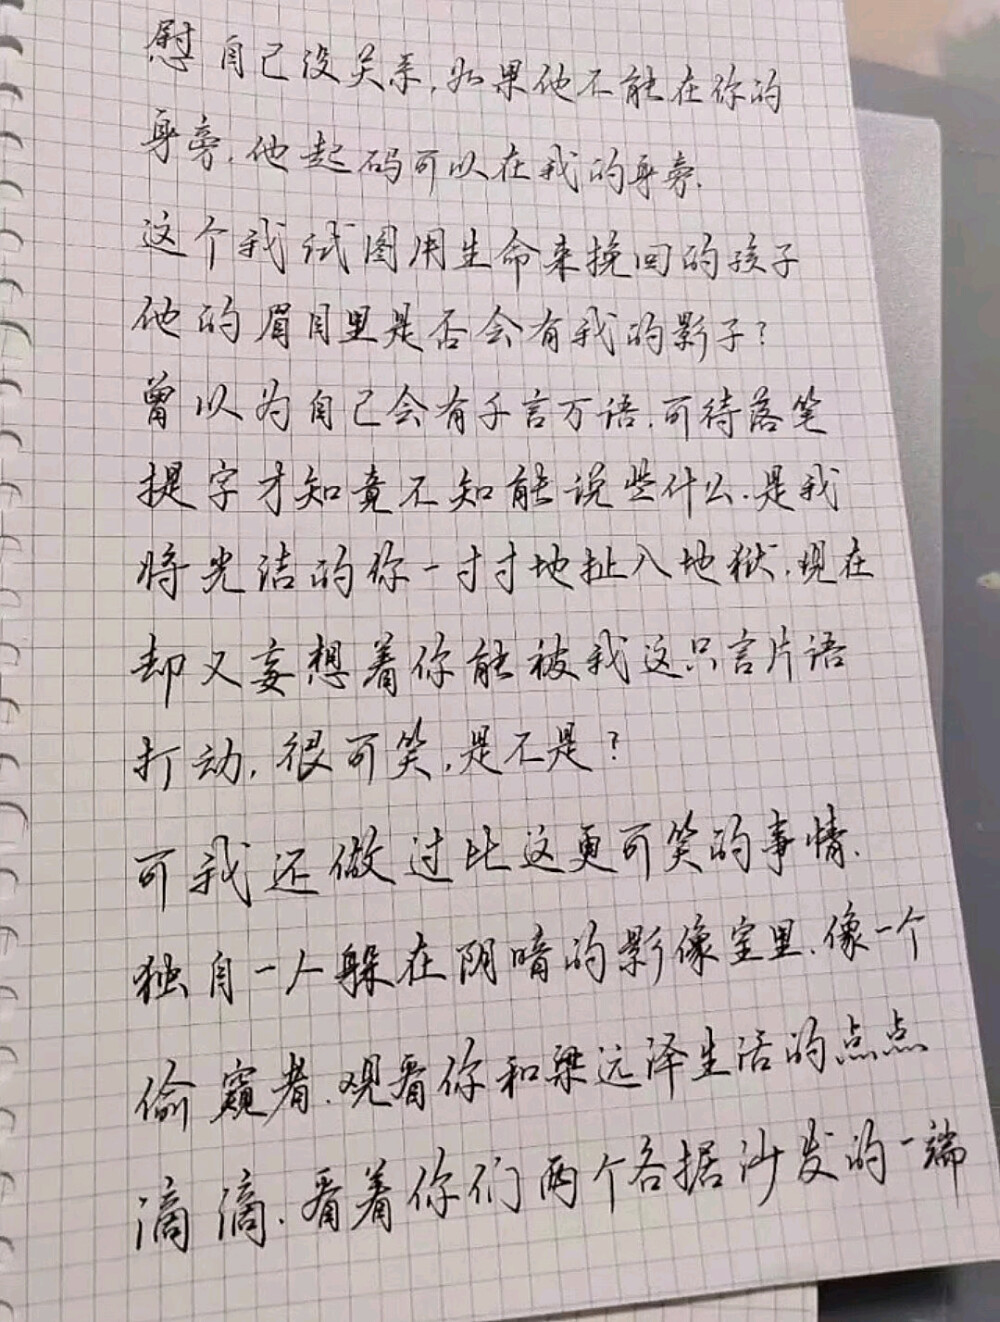 慰自己没关系,如果他不能在你的
身旁,他起码可以在我的身旁.
这个我试图用生命来挽回的孩子
他的眉目里是否会有我的影子?
曾以为自己会有千言万语,可待落笔
提字才知竟不知能说些什么.是我
将光洁的你一寸寸地扯入地狱,现在
却又妄想着你能被我这只言片语
打动,很可笑,是不是?
可我还做过比这更可笑的事情.
独自一人躲在阴暗的影像室里.像一个
偷窥者.观看你和梁远泽生活的点点
滴滴.看着你们两个各据沙发的一端